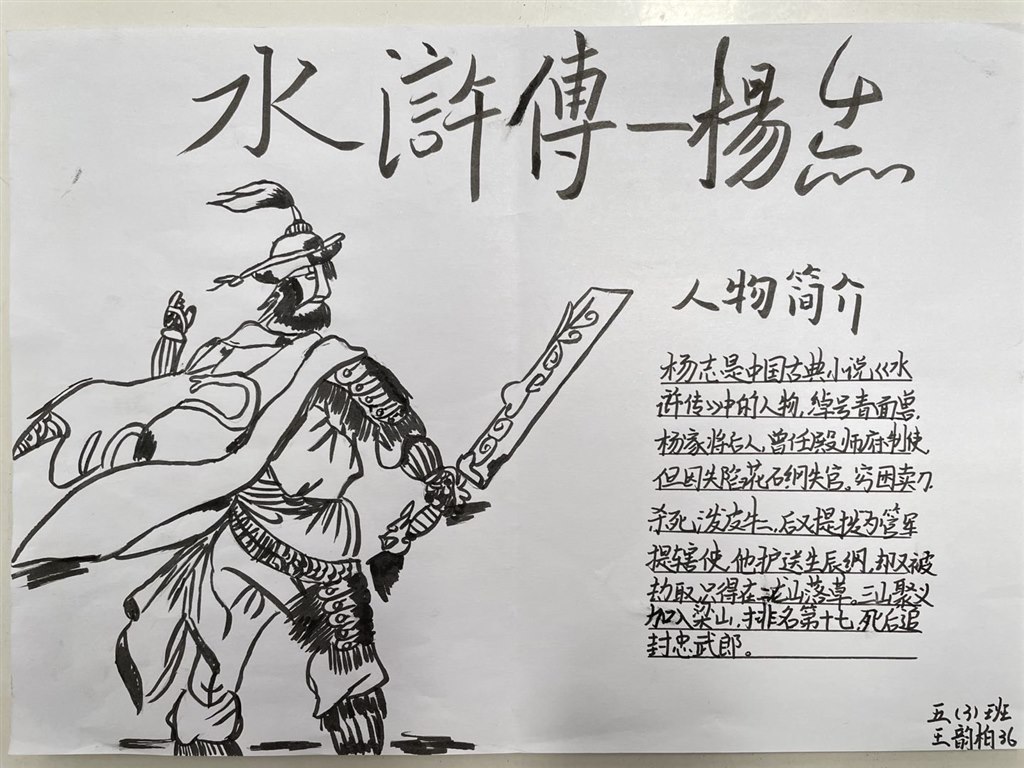 水滸傳一楊志
人物简介
杨志是中国古典小说《水
浒传》中的人物,绰号青面兽,
杨家将后人,曾任殿师府制使
但因失陷花石纲失官。穷困卖刀
杀死泼皮牛二,后又提拔为管军
提辖使,他护送生辰纲,却又被
劫取只得在二龙山落草。三山聚义
加入梁山,排名第十七,死后追
封忠武郎。
五(3)班
王韵柏36